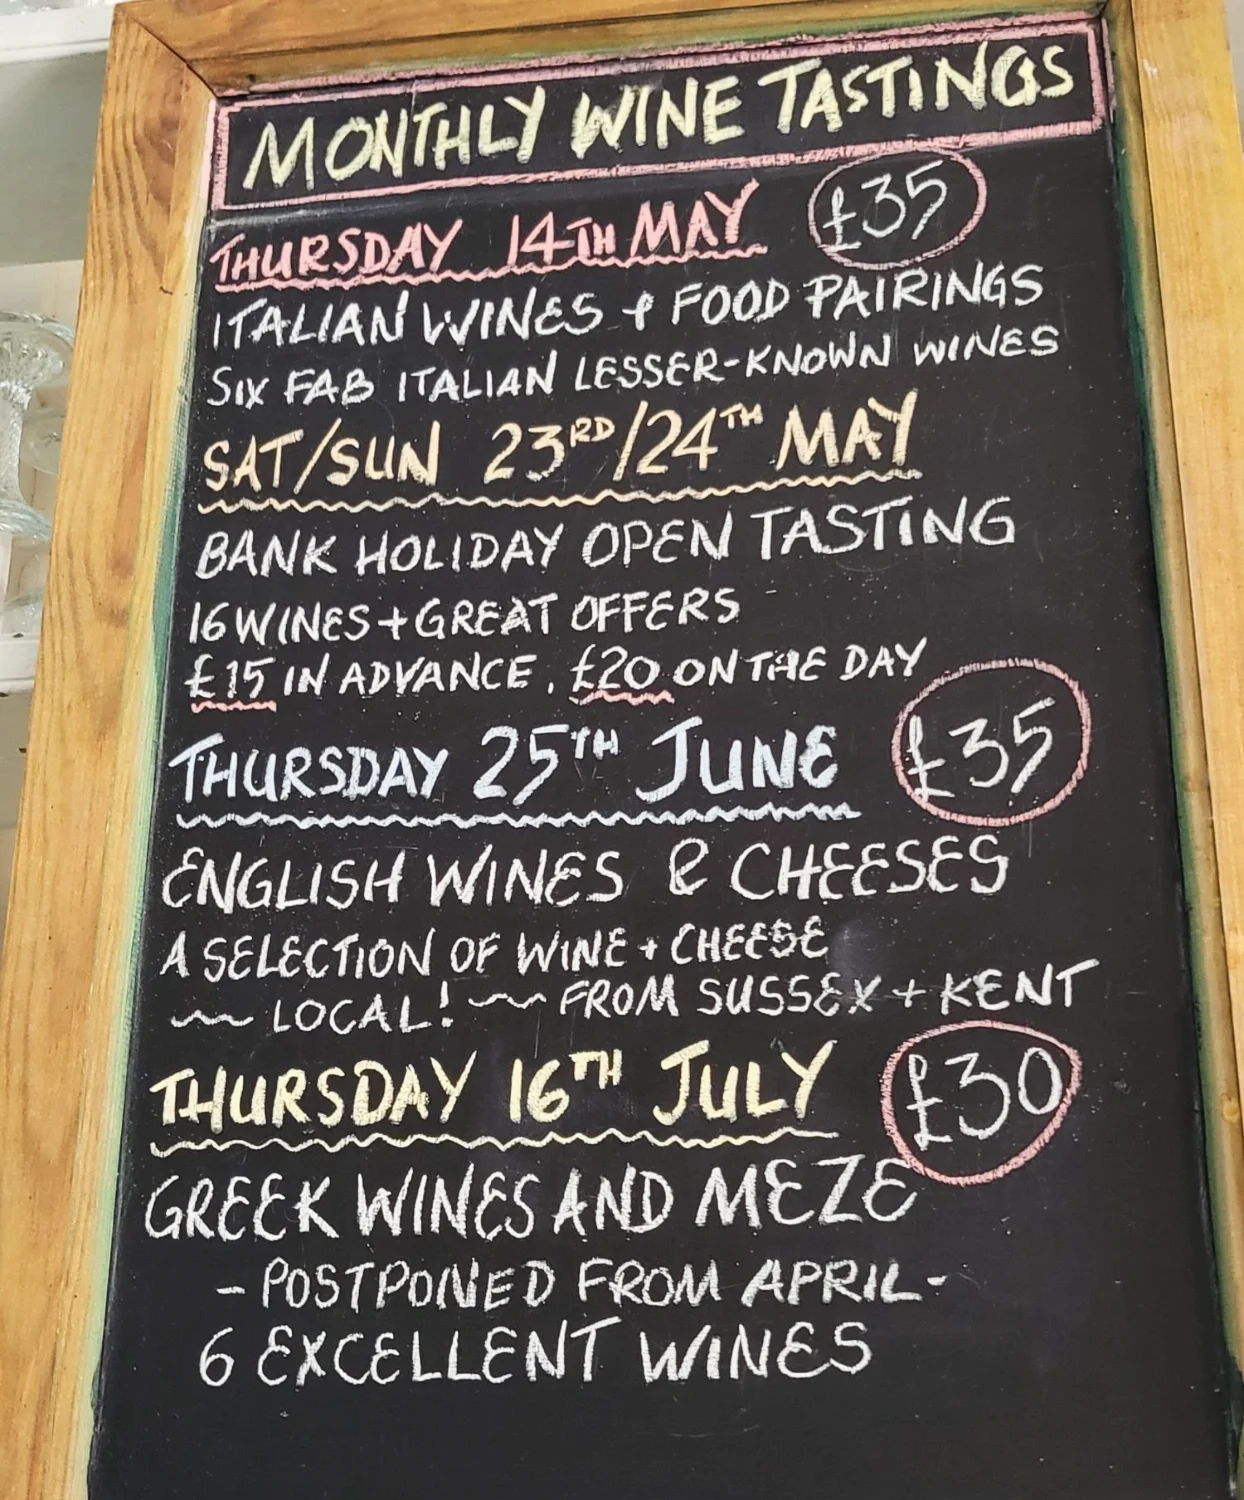 MONTHLY WINE TASTINGS
THURSDAY 14TH MAY £35
ITALIAN WINES + FOOD PAIRINGS
SIX FAB ITALIAN LESSER-KNOWN WINES
SAT/SUN 23RD/24TH MAY
BANK HOLIDAY OPEN TASTING
16 WINES + GREAT OFFERS
£15 IN ADVANCE. £20 ON THE DAY
THURSDAY 25TH JUNE £35
ENGLISH WINES & CHEESES
A SELECTION OF WINE + CHEESE
~ LOCAL! ~ FROM SUSSEX + KENT
THURSDAY 16TH JULY £30
GREEK WINES AND MEZE
- POSTPONED FROM APRIL -
6 EXCELLENT WINES